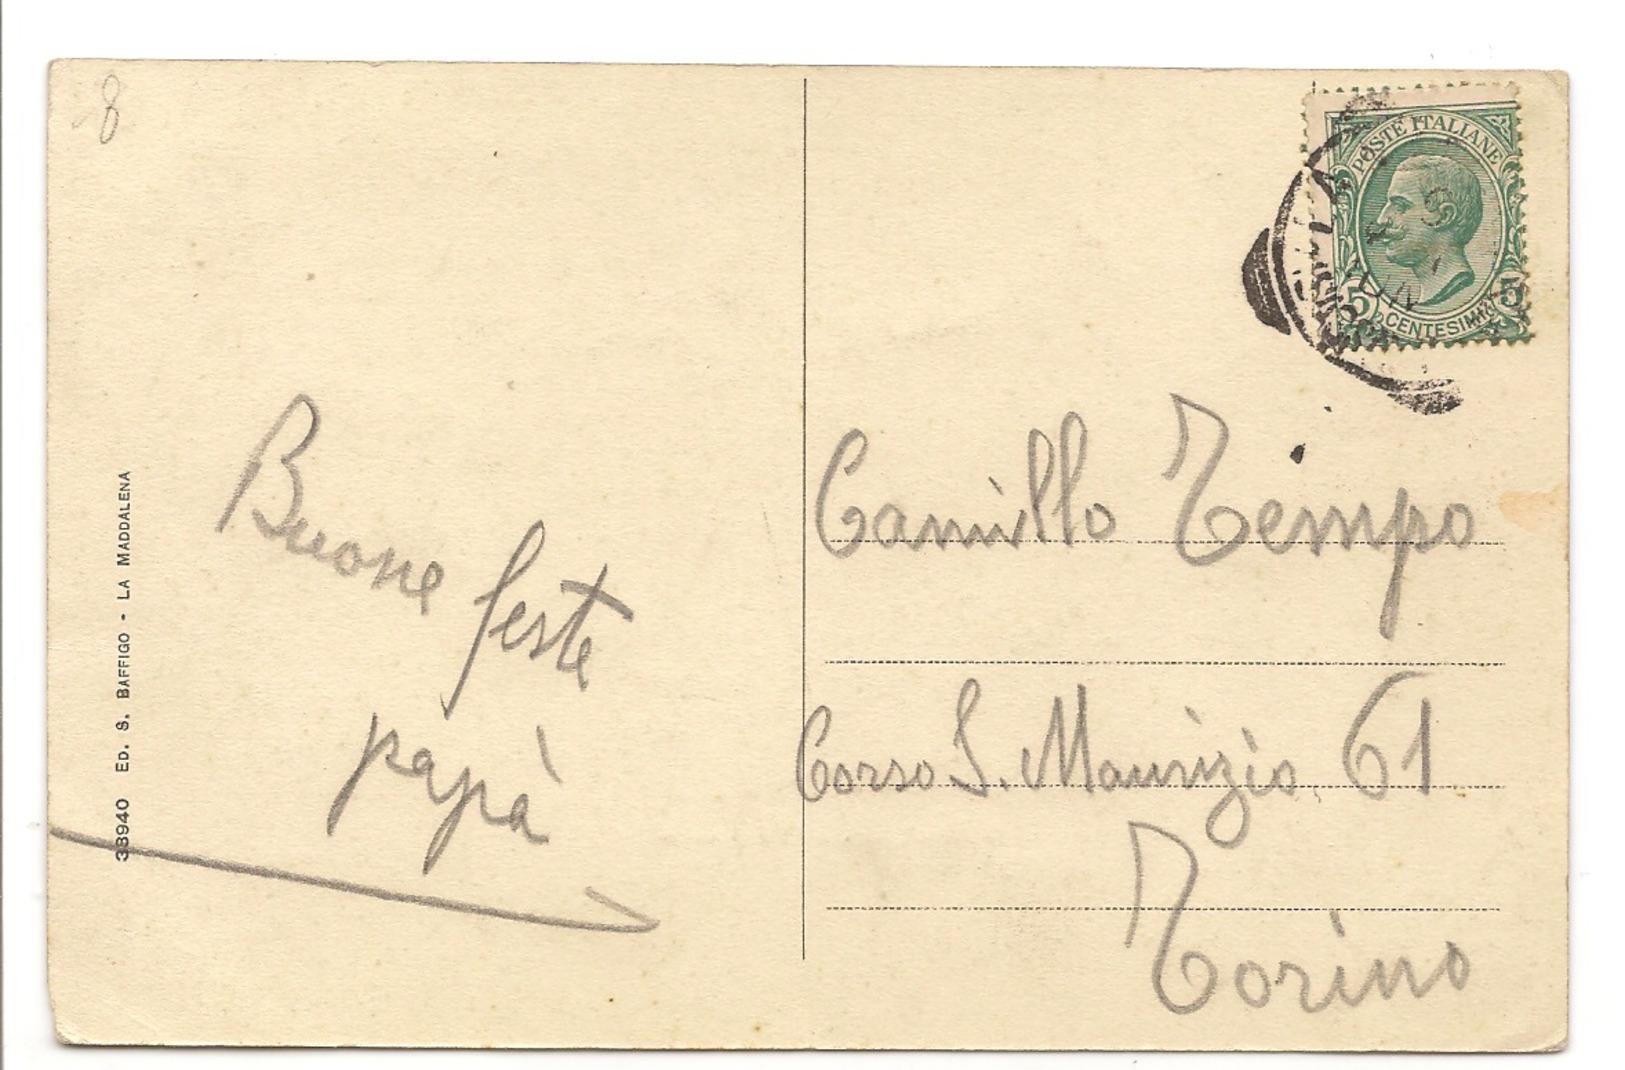 8
38940 ED. S. BAFFIGO - LA MADDALENA
Buone feste
papà
POSTE ITALIANE
5 CENTESIMI 5
Camillo Tempo
Corso S. Maurizio, 61
Torino